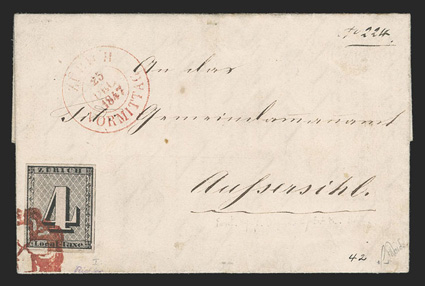 No 224.
ZÜRICH
25
DEC.
1847
VORMITTAG
An das
Tit. Gemeindammanamt
Aussersihl.
ZURICH
4
Local-Taxe
42